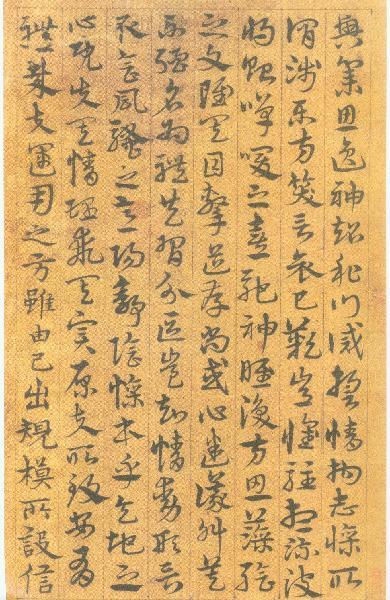 興集思逸神超私門誡誓情拘志慘所
謂涉樂方笑言哀已歎豈惟駐想流波
將貽嘽噯之奏馳神睢渙方思藻繪
之文雖其目擊道存尚或心迷議舛莫
不強名為體共習分區豈知情動形言
取會風騷之意陽舒陰慘本乎天地之
心既失其情理乖其實原夫所致安有
體哉夫運用之方雖由己出規模所設信